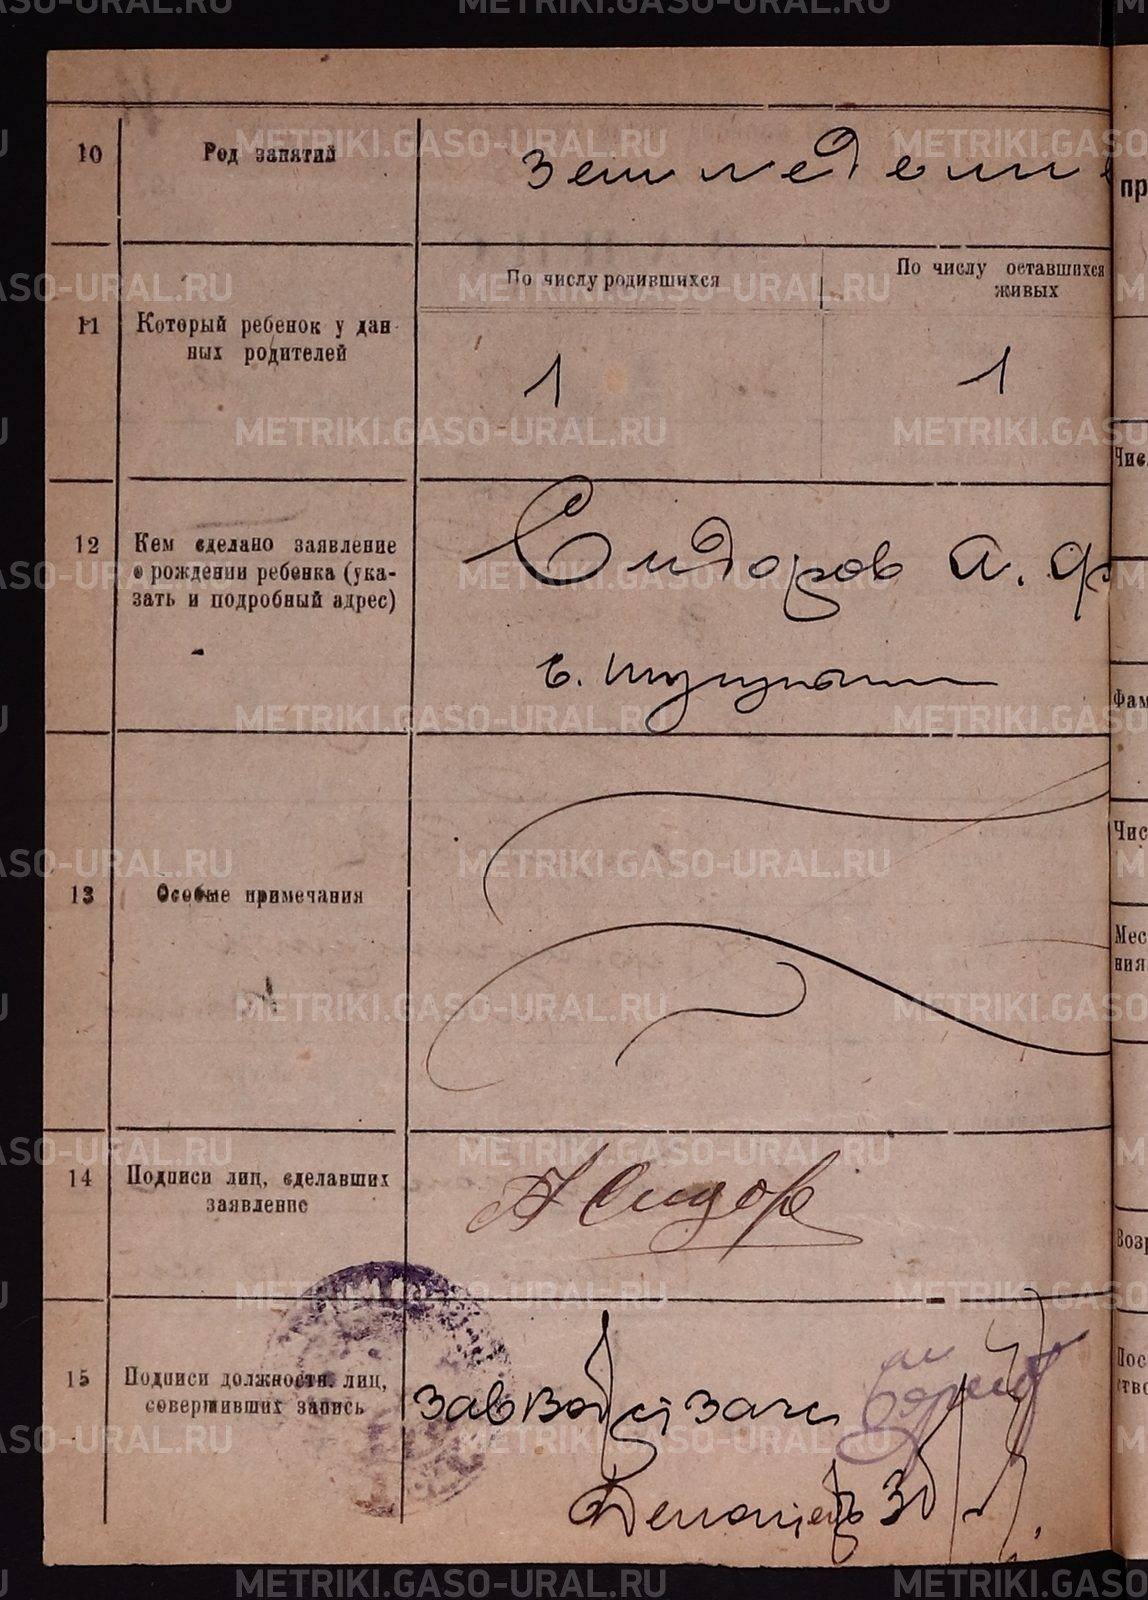 10 Род занятий земледелие
По числу родившихся По числу оставшихся живых
11 Который ребенок у дан-
ных родителей
1 1
12 Кем сделано заявление
о рождении ребенка (ука-
зать и подробный адрес)
Сидоров А. Ф
13 Особые примечания
14 Подписи лиц, сделавших
заявление
А Сидоров
15 Подписи должностн. лиц,
совершивших запись
пр
Чис
Фам
Чис
Мес
ния
Возр
Пос
ство
METRIKI.GASO-URAL.RU